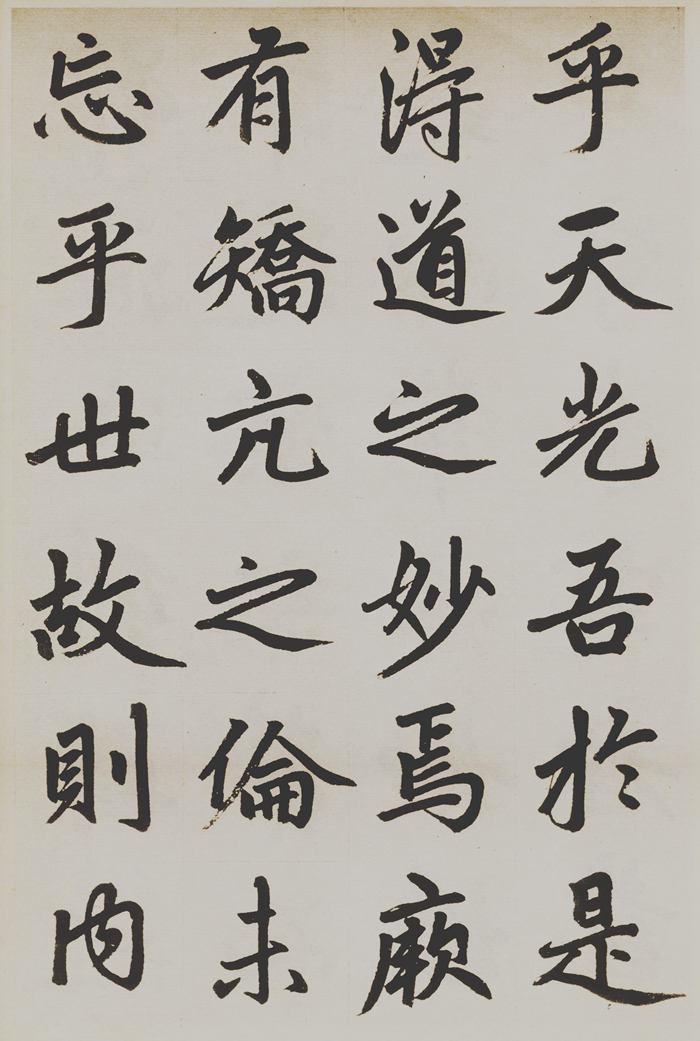 乎天光吾於是
得道之妙焉厥
有矯亢之倫未
忘乎世故則内